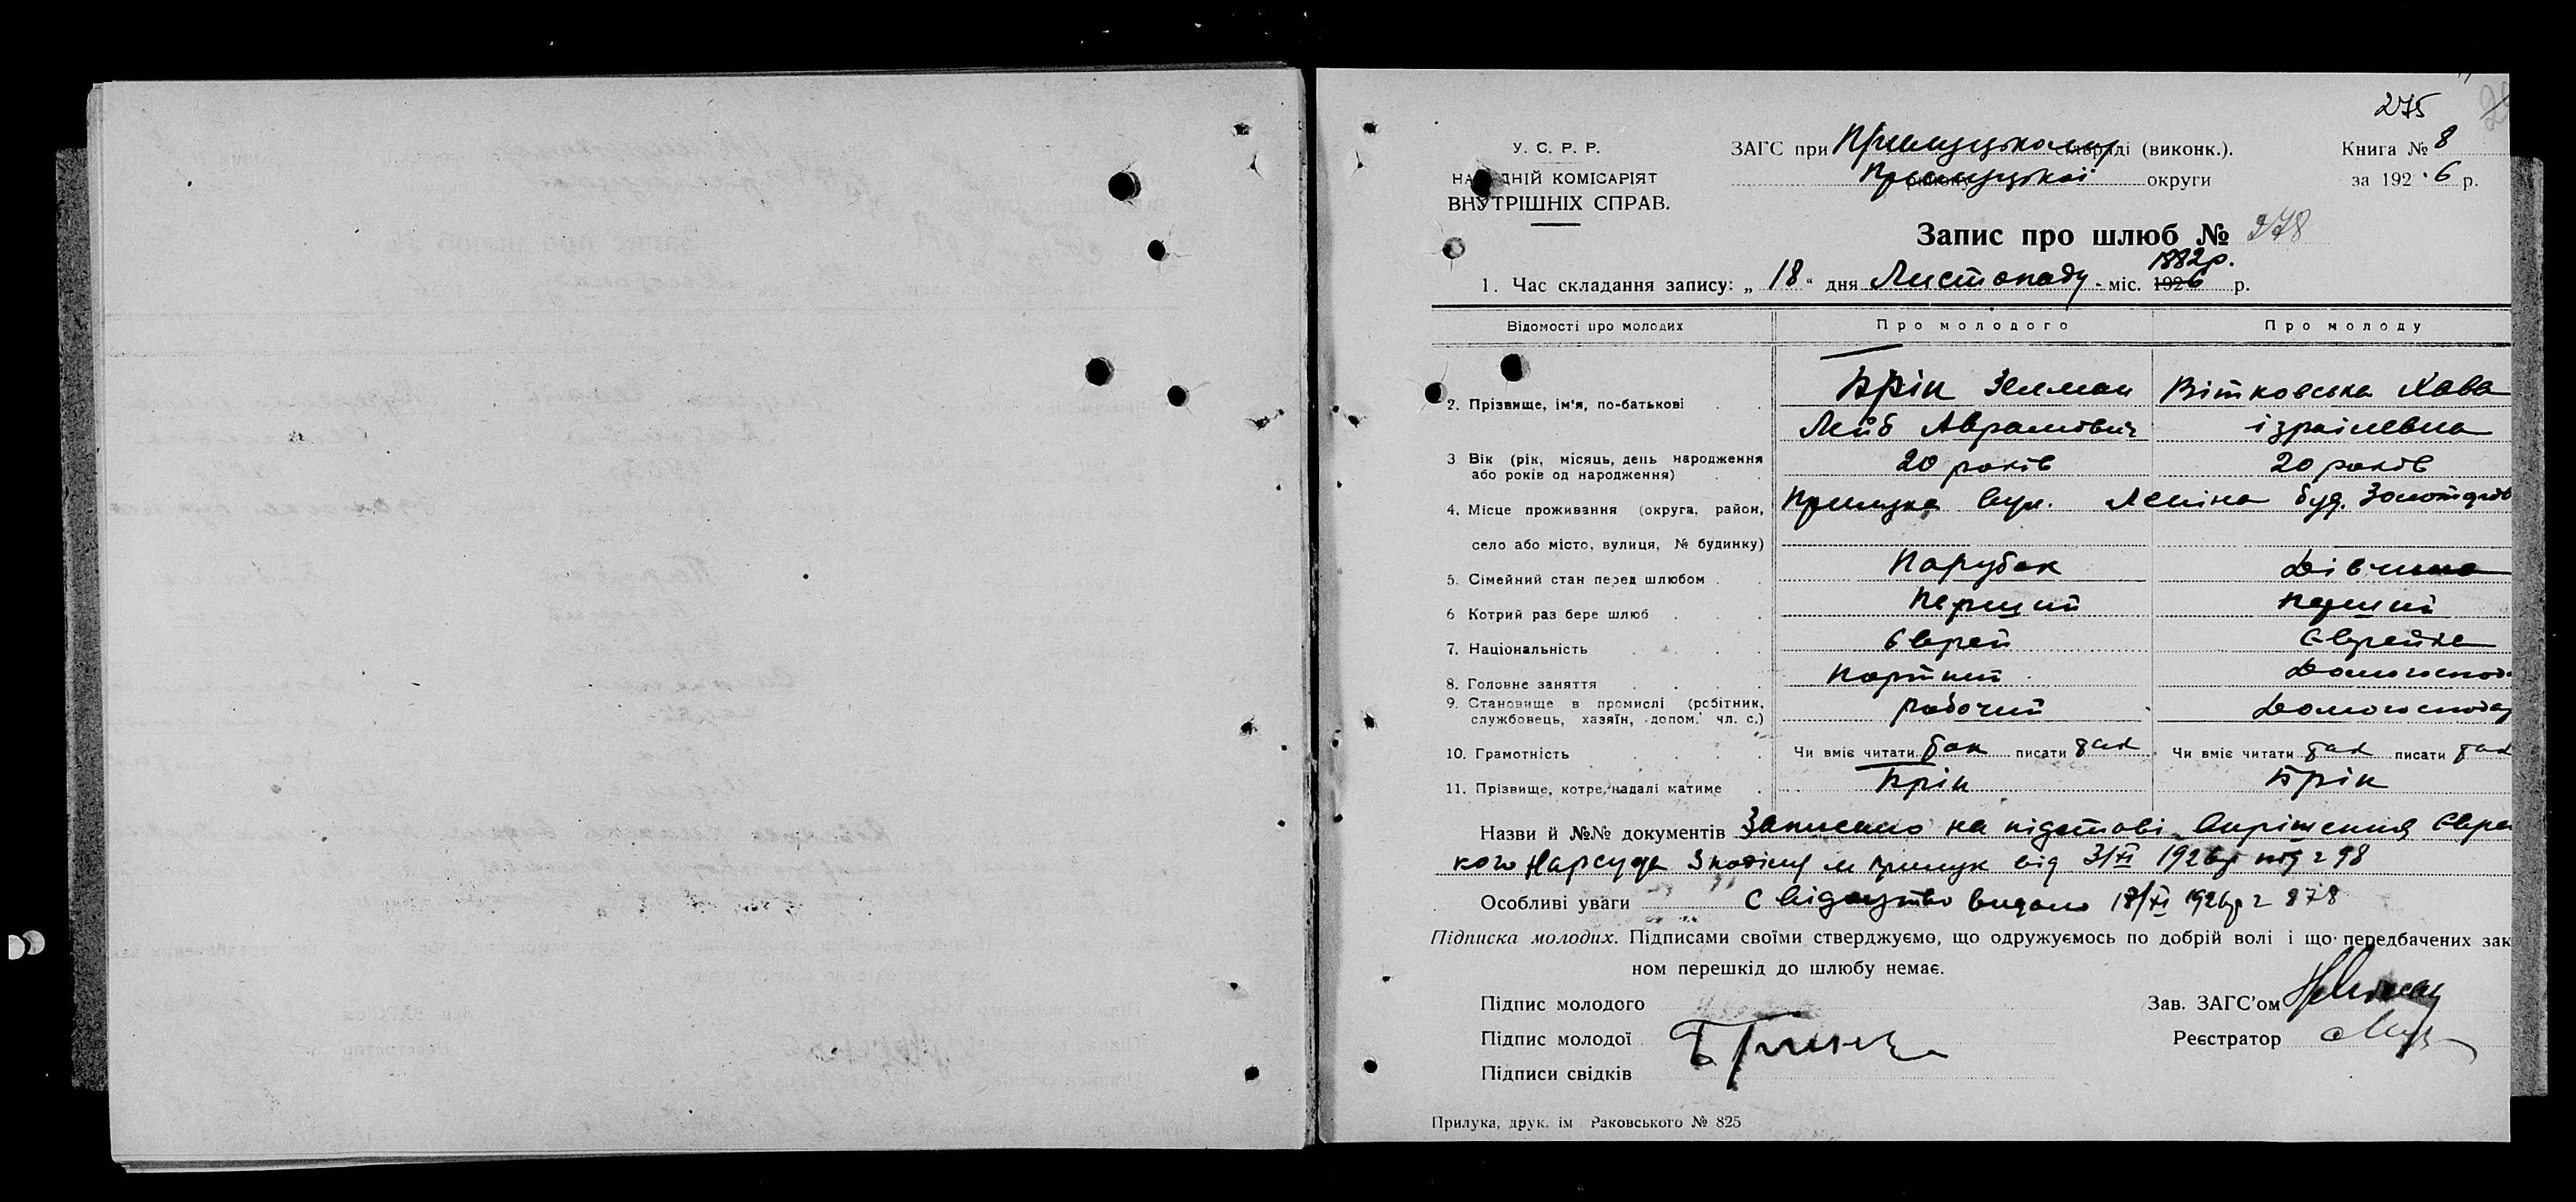 275
У. С. Р. Р.
НАРОДНІЙ КОМІСАРІЯТ
ВНУТРІШНІХ СПРАВ.
ЗАГС при (виконк.).
Прилуцької округи
Книга № 8
за 192 6 р.
Запис про шлюб № 278
1882р.
1. Час складання запису: „ 18 " дня Листопаду міс. 1926 р.
Відомості про молодих Про молодого Про молоду
2. Прізвище, ім'я, по-батькові Брін Зелман Вітковська Хава
Лейб Аврамович ізраілевна
3 Вік (рік, місяць, день народження
або років од народження) 20 років 20 років
4. Місце проживання (округа, район, Прилука вул. Леніна буд.
село або місто, вулиця, № будинку)
5. Сімейний стан перед шлюбом Парубок Дівчина
6 Котрий раз бере шлюб Перший перший
7. Національність Єврей Єврейка
8. Головне заняття Портний Домогоспод
9. Становище в промислі (робітник,
службовець, хазяїн, допом. чл. с.) рабочий Домогосподар
10. Грамотність Чи вміє читати так писати так Чи вміє читати так писати так
11. Прізвище, котре надалі матиме Брін Брін
Назви й №№ документів Записано на підставі Вирішення Євре
кого Нарсуда м Прилук від 3/XI 1926р 98
Особливі уваги Свідоцтво видано 18/XI 1926р 878
Підписка молодих. Підписами своїми стверджуємо, що одружуємось по добрій волі і що передбачених зак
ном перешкід до шлюбу немає.
Підпис молодого
Зав. ЗАГС'ом
Підпис молодої
Реєстратор
Підписи свідків
Прилука, друк. ім Раковського № 825